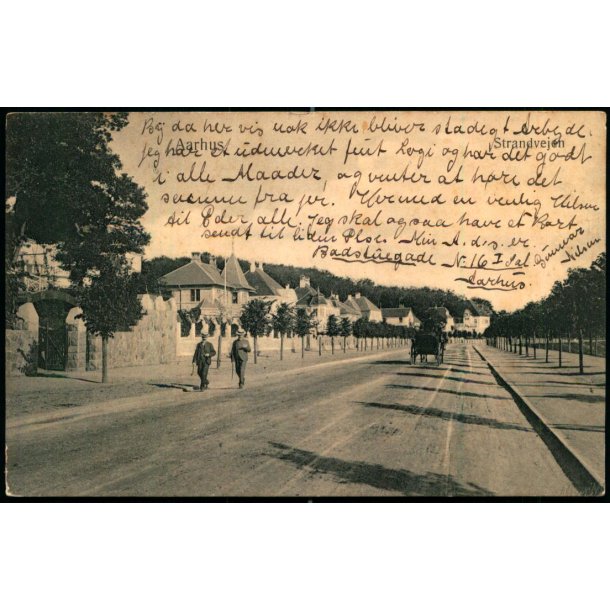 da her vis nok ikke bliver stadigt Arbejde.
Aarhus
Strandvejen
Jeg har et udmærket fint Logi og har det godt
i alle Maader, og venter at høre det
samme fra jer. Hermed en venlig Hilsen
til Eder alle. Jeg skal ogsaa have et Kort
sendt til Min A.ds. er.
Badstûegade No 16 I Sal
Aarhus
Gunnar
Nielsen